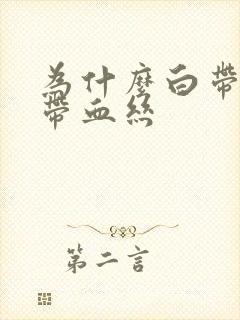 為什麼白帶
帶血絲
第二言